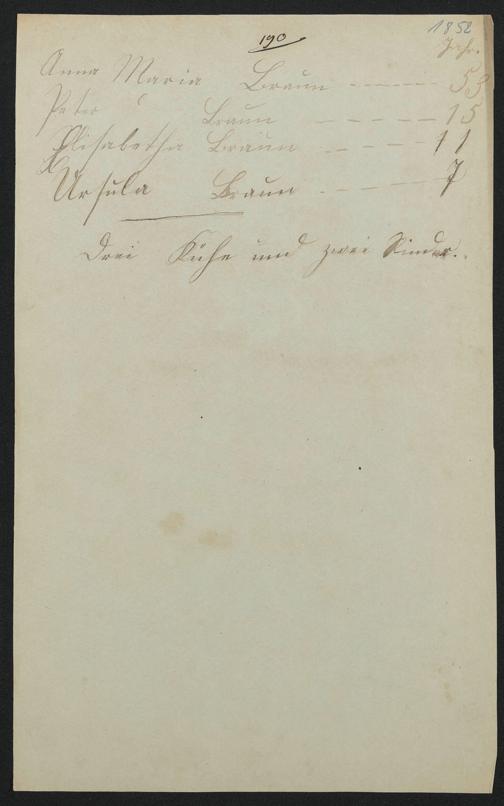 190
1852
Jahr.
Anna Maria Braun ------ 53
Peter Braun ------ 15
Elisabetha Braun ----- 11
Ursula Braun ---- 7
Drei Kühe und zwei Rinder.